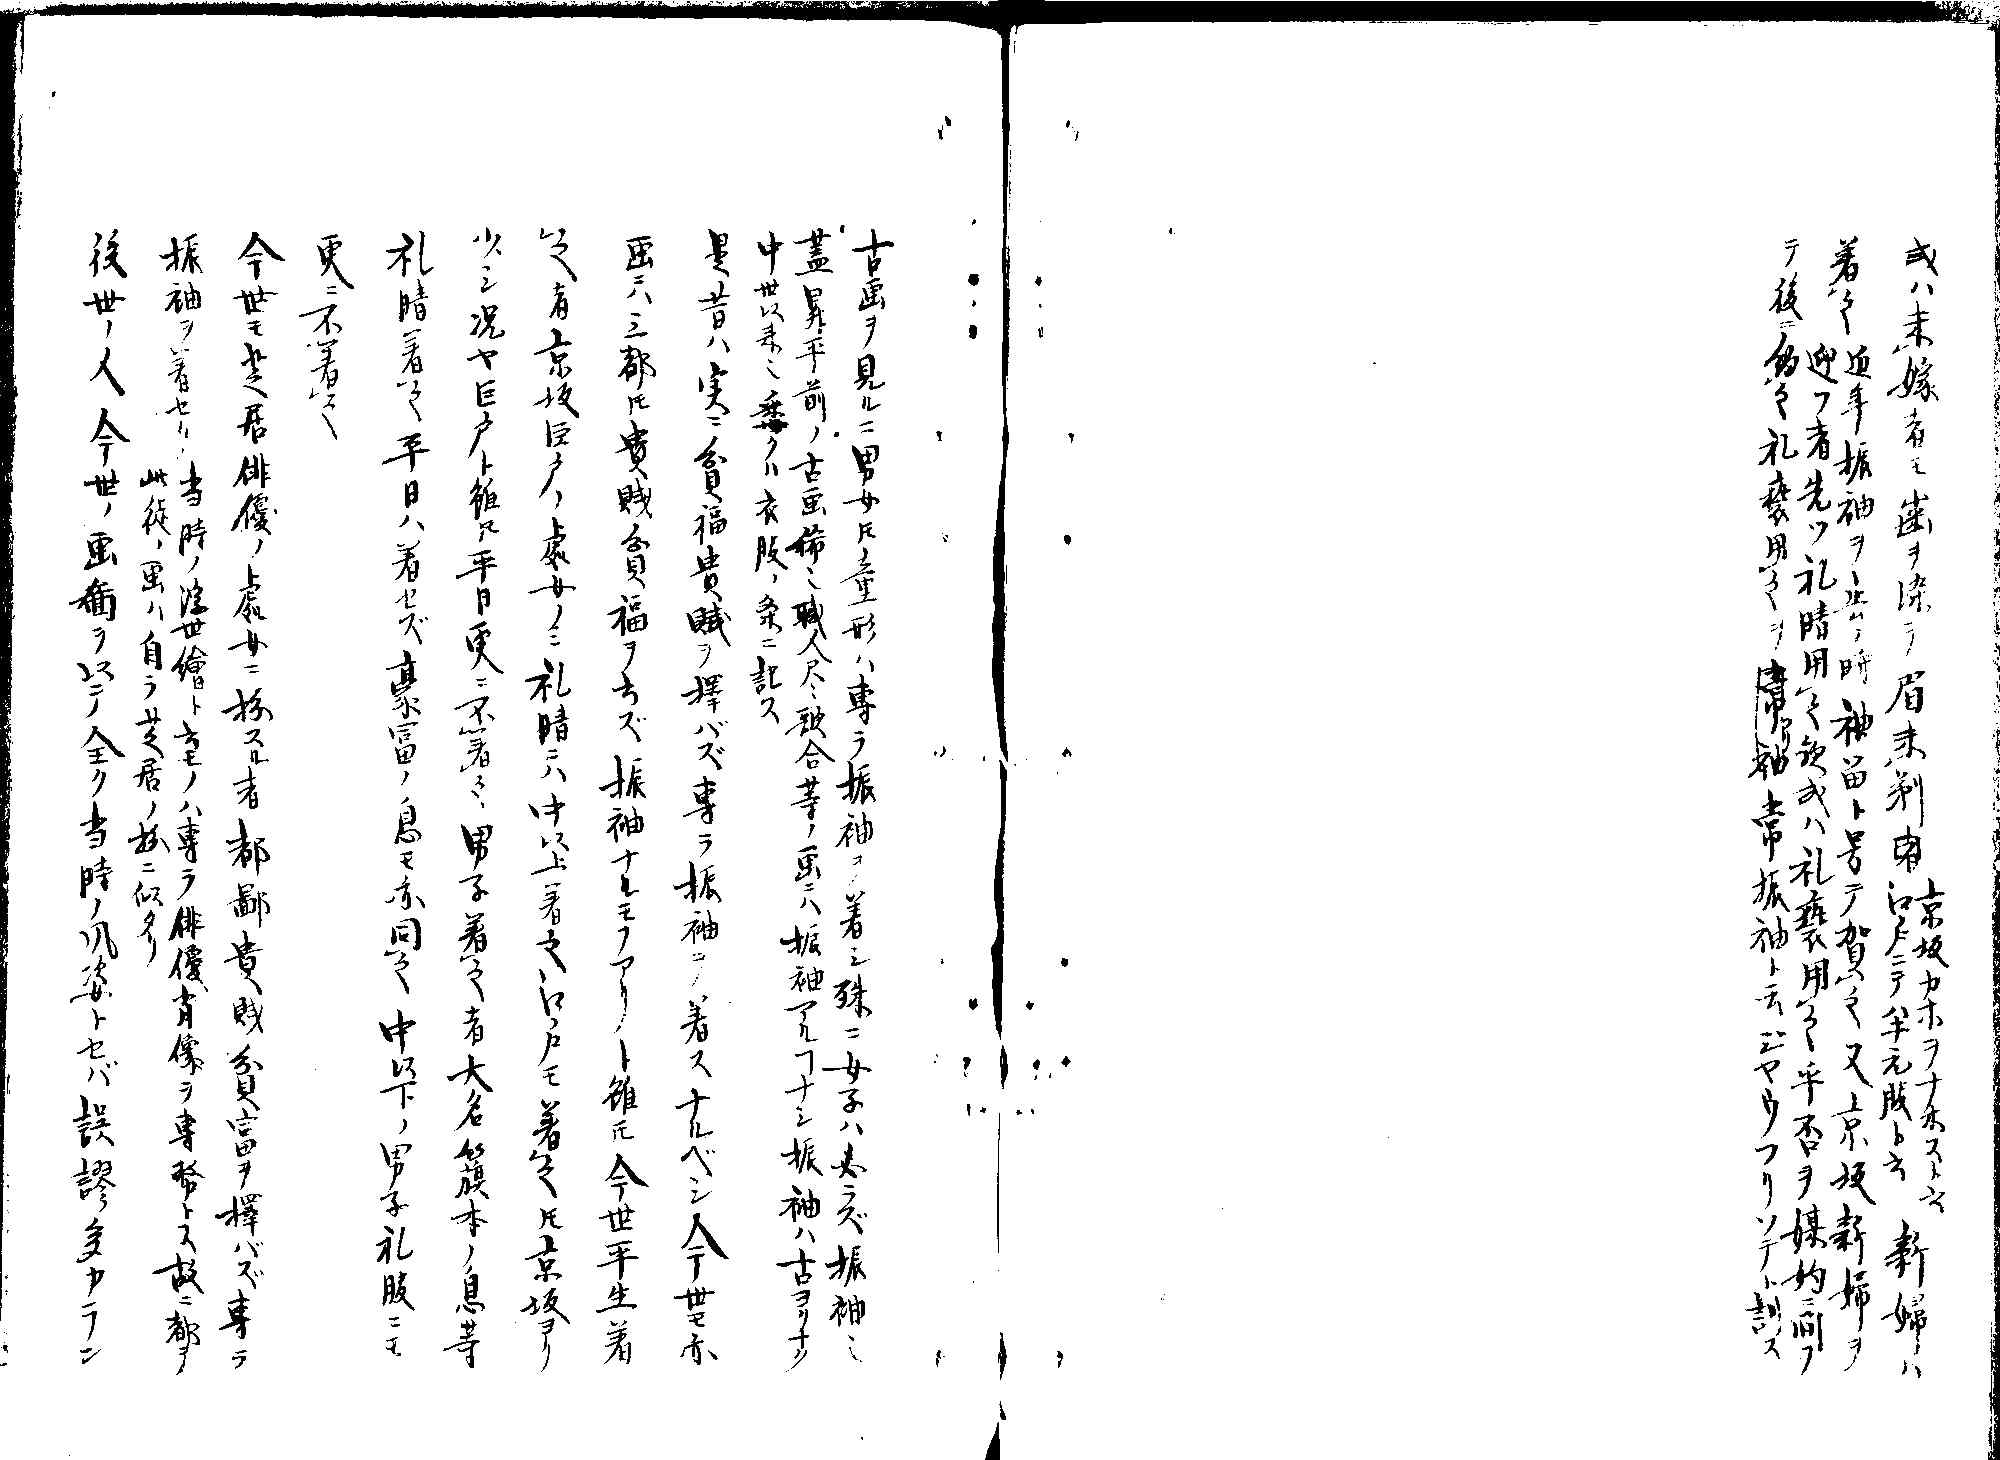 或ハ未嫁者モ歯ヲ染テ眉未剃有
京坂カホヲナホスト云
江戸ニテ半元服ト云
新婦ハ
着之
近年振袖ヲ止ルノ時袖留ト号テ賀之又京坂新婦ヲ
迎フ者先ツ礼晴用之歟或ハ礼褻用之乎否ヲ媒妁ニ問フ
テ後ニ約之礼褻用之ヲ常振袖ト云ジヤウフリソデト訓ス
古画ヲ見ルニ男女トモ童形ハ専ラ振袖ヲ着シ殊ニ女子ハ必ラズ振袖也
蓋昇平前ノ古画稀也職人尽歌合等ノ画ニハ振袖アルコナシ振袖ハ古ヨリナク
中世以来也委クハ衣服ノ条ニ記ス
是昔ハ実ニ貧福貴賎ヲ擇バズ専ラ振袖ヲ着スナルベシ今世モ亦
画ニハ三都トモ貴賎貧福ヲ云ズ振袖ナルモノアリト雖トモ今世平生着
之者京坂巨戸ノ處女ノミ礼晴ニハ中以上着之江戸モ着之トモ京坂ヨリ
少シ况ヤ巨戸ト雖トモ平日更ニ不着之男子着之者大名籏本ノ息等
礼晴着之平日ハ着セズ豪富ノ息モ亦同之中以下ノ男子礼服ニモ
更ニ不着之
今世モ芝居俳優ノ處女ニ扮スル者都鄙貴賎貧富ヲ擇バズ専ラ
振袖ヲ着セリ
当時ノ浮世繪ト云モノハ専ラ俳優肖像ヲ専務トス故ニ都テ
此徒ノ画ハ自ラ芝居ノ扮ニ似タリ
後世ノ人今世ノ画冊ヲ以テ全ク当時ノ風姿トセバ誤謬多カラン